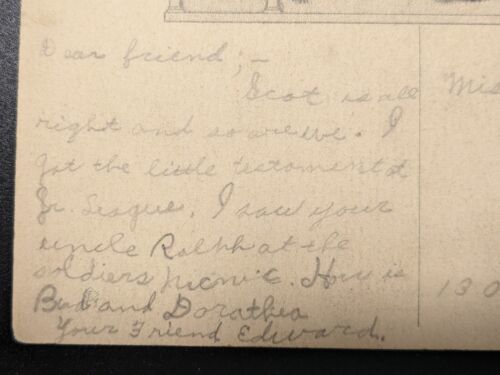 Dear friend; -
Scot is all
right and so are we. I
got the little testament at
Jr. League. I saw your
uncle Ralph at the
soldiers picnic. How is
Bud and Dorathea
Your Friend Edward.
Mis
130